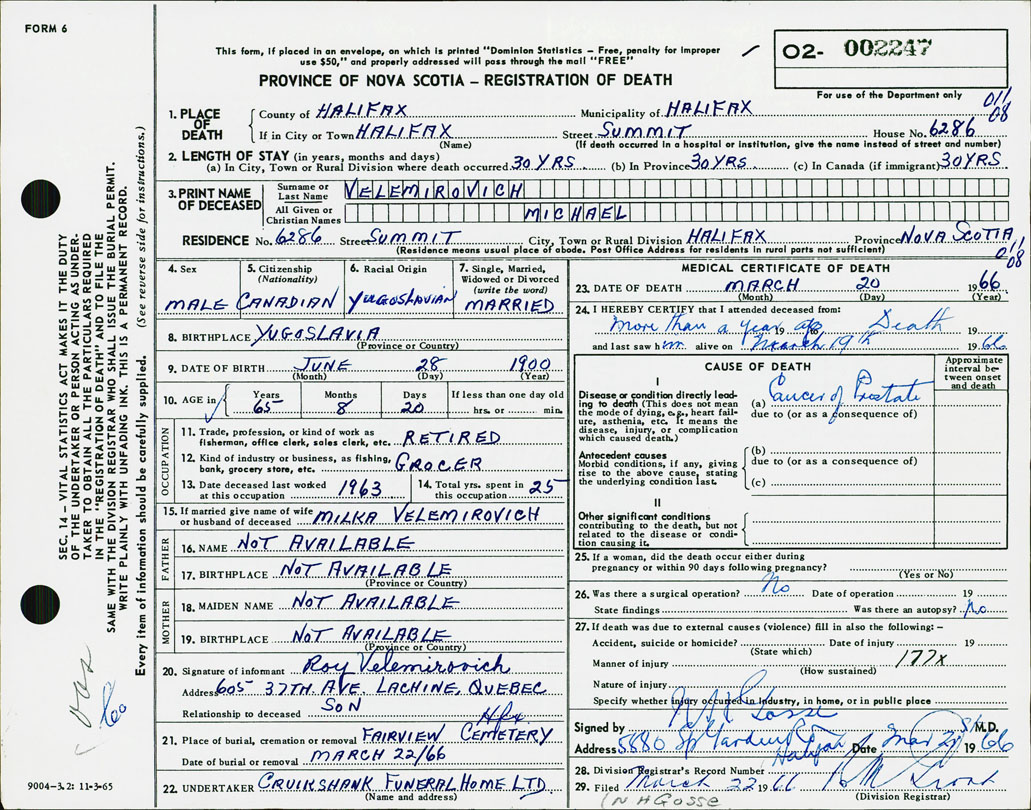 FORM 6
This form, if placed in an envelope, on which is printed "Dominion Statistics – Free, penalty for improper
use $50," and properly addressed will pass through the mail "FREE"
PROVINCE OF NOVA SCOTIA – REGISTRATION OF DEATH
O2- 002247
For use of the Department only
011
08
1. PLACE OF DEATH
County of HALIFAX Municipality of HALIFAX
If in City or Town HALIFAX Street SUMMIT House No. 6286
(Name) (If death occurred in a hospital or institution, give the name instead of street and number)
2. LENGTH OF STAY (in years, months and days)
(a) In City, Town or Rural Division where death occurred 30 YRS (b) In Province 30 YRS (c) In Canada (if immigrant) 30 YRS
3. PRINT NAME OF DECEASED
Surname or Last Name VELEMIROVICH
All Given or Christian Names MICHAEL
RESIDENCE No. 6286 Street SUMMIT City, Town or Rural Division HALIFAX Province NOVA SCOTIA
(Residence means usual place of abode. Post Office Address for residents in rural parts not sufficient)
011
08
4. Sex
MALE
5. Citizenship
(Nationality)
CANADIAN
6. Racial Origin
YUGOSLAVIAN
7. Single, Married,
Widowed or Divorced
(write the word)
MARRIED
8. BIRTHPLACE YUGOSLAVIA
(Province or Country)
9. DATE OF BIRTH JUNE 28 1900
(Month) (Day) (Year)
10. AGE in
Years Months Days If less than one day old
65 8 20 hrs. or min.
OCCUPATION
11. Trade, profession, or kind of work as
fisherman, office clerk, sales clerk, etc. RETIRED
12. Kind of industry or business, as fishing,
bank, grocery store, etc. GROCER
13. Date deceased last worked
at this occupation 1963
14. Total yrs. spent in
this occupation 25
15. If married give name of wife
or husband of deceased MILKA VELEMIROVICH
FATHER
16. NAME NOT AVAILABLE
17. BIRTHPLACE NOT AVAILABLE
(Province or Country)
MOTHER
18. MAIDEN NAME NOT AVAILABLE
19. BIRTHPLACE NOT AVAILABLE
(Province or Country)
20. Signature of informant Roy Velemirovich
Address 605 37TH. AVE. LACHINE, QUEBEC
Relationship to deceased SON
Hfx
21. Place of burial, cremation or removal FAIRVIEW CEMETERY
Date of burial or removal MARCH 22/66
22. UNDERTAKER CRUIKSHANK FUNERAL HOME LTD.
(Name and address)
MEDICAL CERTIFICATE OF DEATH
23. DATE OF DEATH MARCH 20 1966
(Month) (Day) (Year)
24. I HEREBY CERTIFY that I attended deceased from:
More than a year 19 to Death 19
and last saw him alive on March 19th 1966
CAUSE OF DEATH
Approximate
interval be-
tween onset
and death
I
Disease or condition directly lead-
ing to death (This does not mean
the mode of dying, e.g., heart fail-
ure, asthenia, etc. It means the
disease, injury, or complication
which caused death.)
(a) Cancer of Prostate
due to (or as a consequence of)
Antecedent causes
Morbid conditions, if any, giving
rise to the above cause, stating
the underlying condition last.
(b)
due to (or as a consequence of)
(c)
II
Other significant conditions
contributing to the death, but not
related to the disease or condi-
tion causing it.
25. If a woman, did the death occur either during
pregnancy or within 90 days following pregnancy?
(Yes or No)
26. Was there a surgical operation? No Date of operation 19
State findings Was there an autopsy? No
27. If death was due to external causes (violence) fill in also the following: –
Accident, suicide or homicide? Date of injury 19
(State which)
Manner of injury 177x
(How sustained)
Nature of injury
Specify whether injury occurred in industry, in home, or in public place
Signed by Gosse M.D.
Address 5880 Spring Garden Rd Halifax Date Mar 21 1966
28. Division Registrar's Record Number
29. Filed March 22 1966
(Division Registrar)
(N H Gosse
SEC. 14 – VITAL STATISTICS ACT MAKES IT THE DUTY
OF THE UNDERTAKER OR PERSON ACTING AS UNDER-
TAKER TO OBTAIN ALL THE PARTICULARS REQUIRED
IN THE "REGISTRATION OF DEATH" AND TO FILE THE
SAME WITH THE DIVISION REGISTRAR WHO SHALL ISSUE THE BURIAL PERMIT.
WRITE PLAINLY WITH UNFADING INK. THIS IS A PERMANENT RECORD.
Every item of information should be carefully supplied. (See reverse side for instructions.)
9004-3.2: 11-3-65